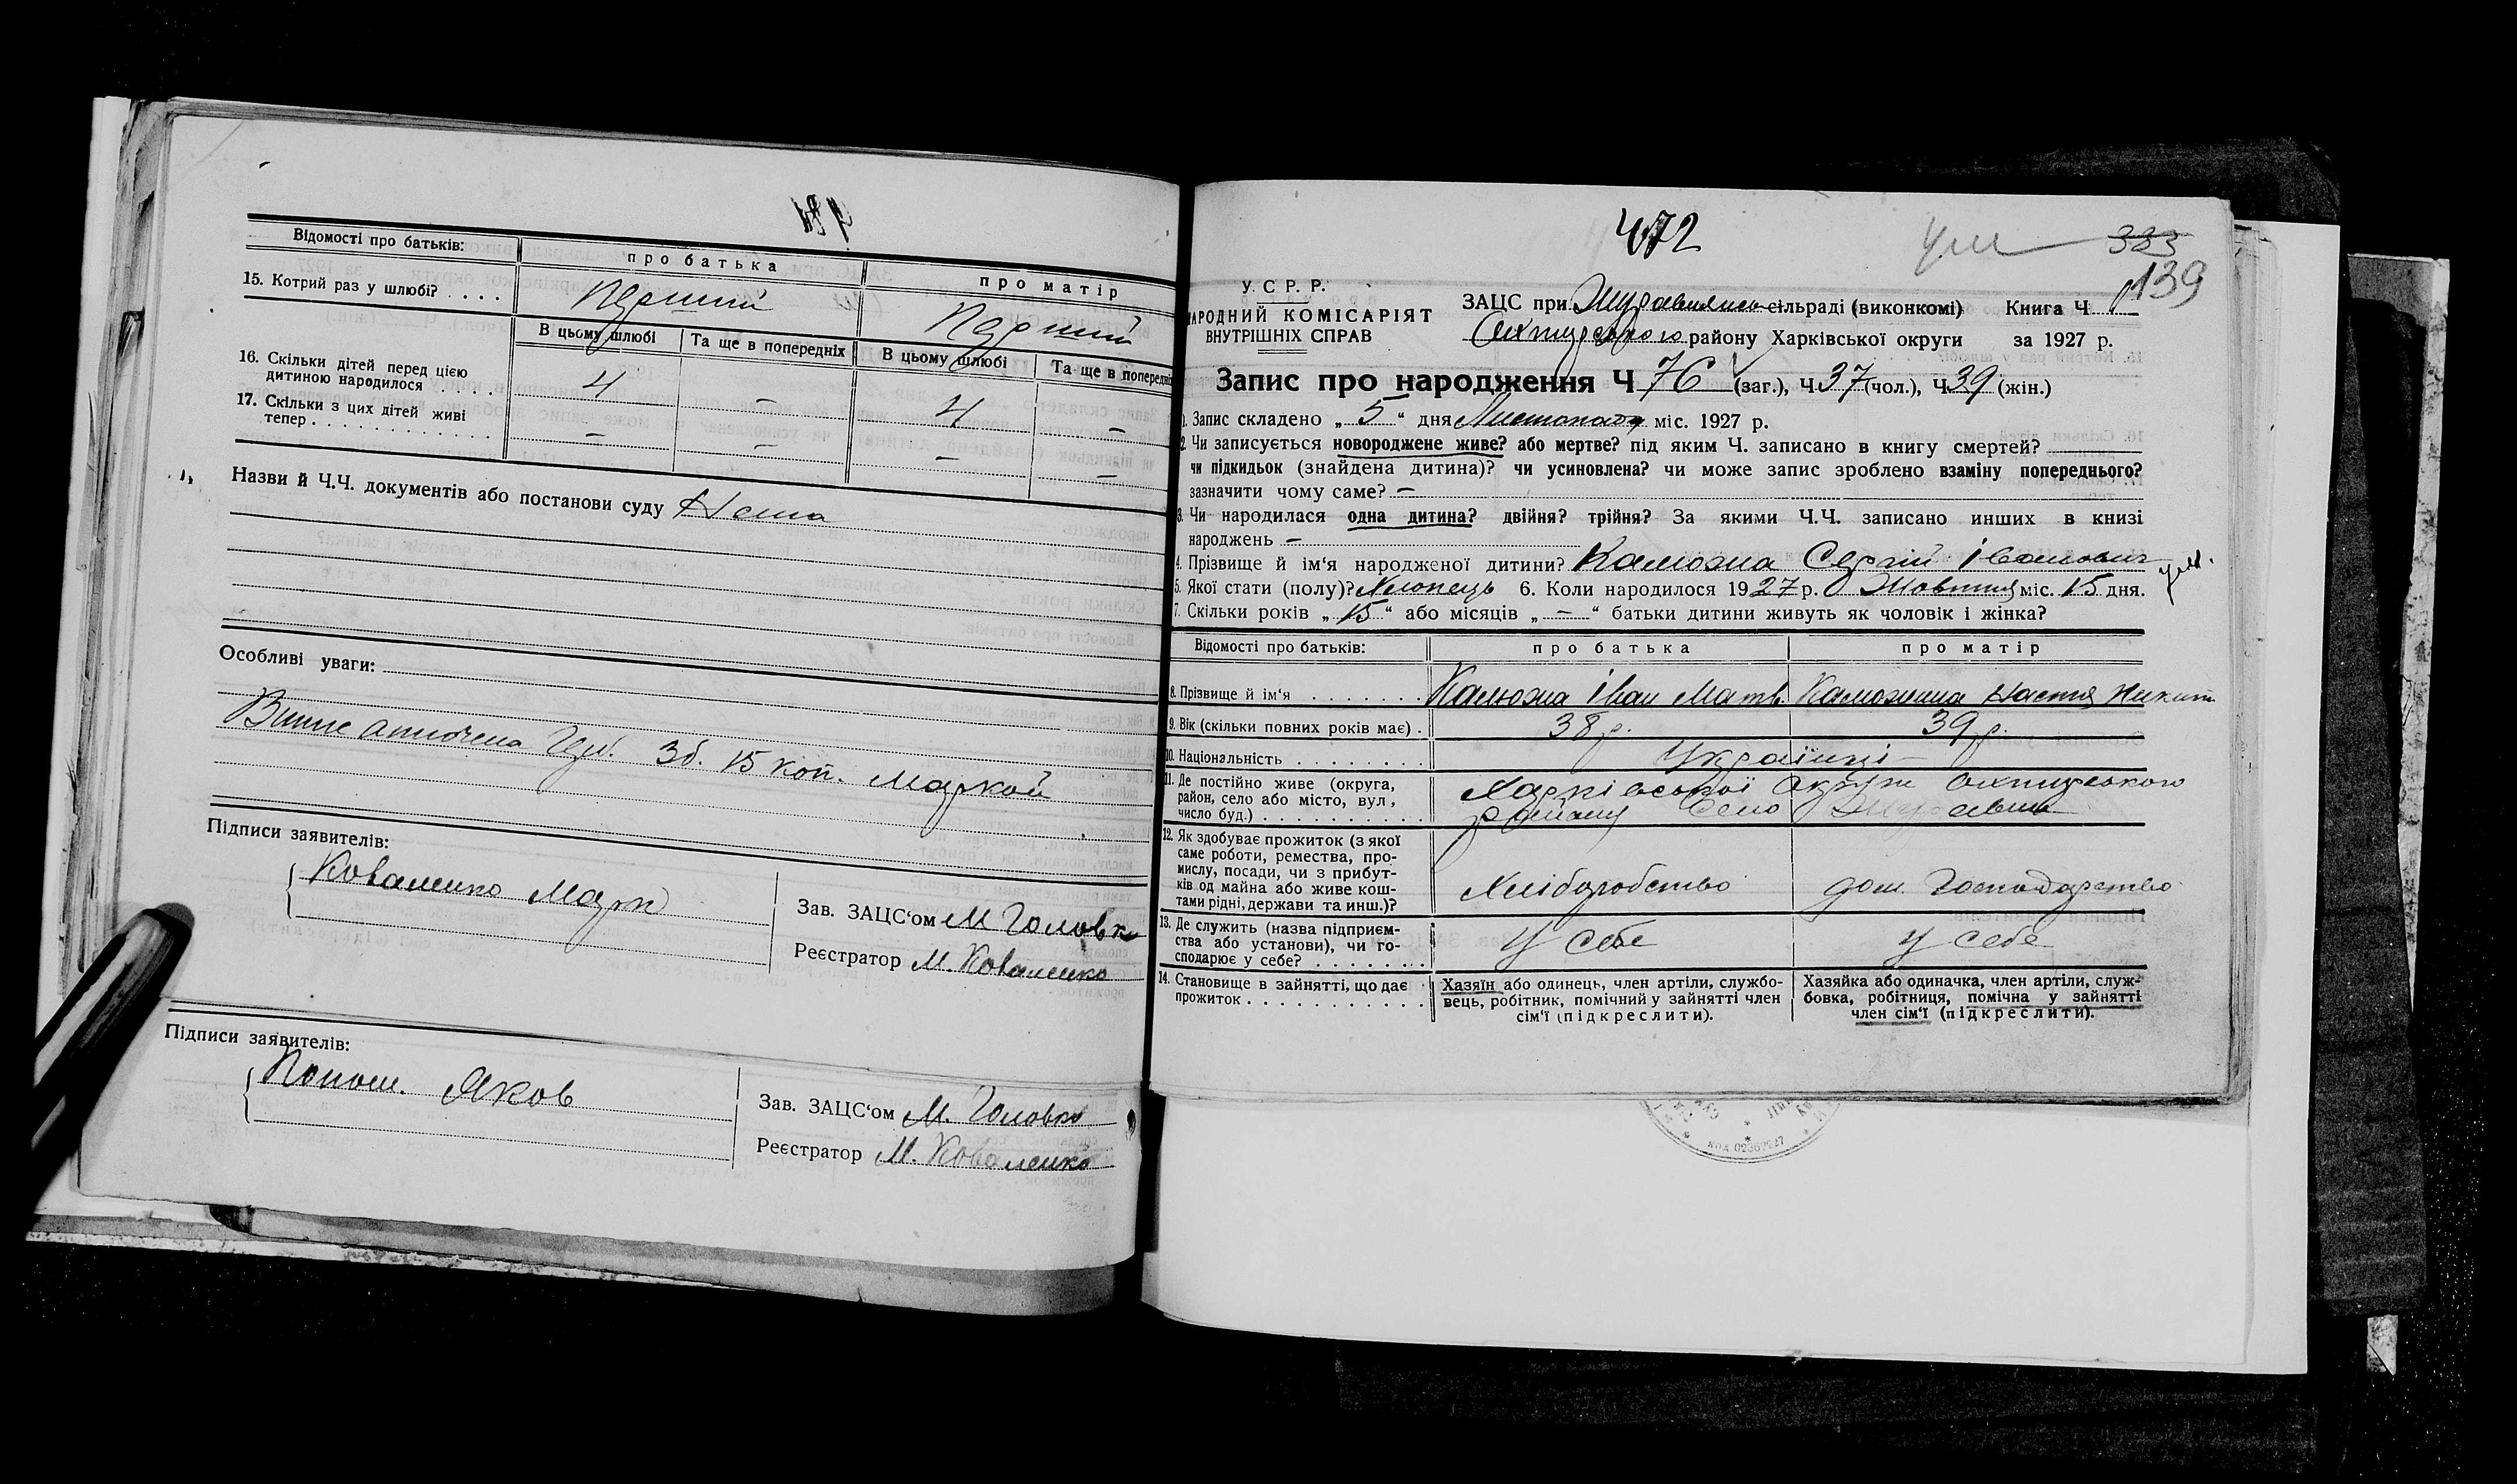 Відомості про батьків:
про батька
про матір
15. Котрий раз у шлюбі? . . . .
Перший
Перший
В цьому шлюбі
Та ще в попередніх
В цьому шлюбі
Та ще в попередніх
16. Скільки дітей перед цією
дитиною народилося . . . .
4
–
4
–
17. Скільки з цих дітей живі
тепер . . . . . . . . . . . .
–
–
–
–
Назви й Ч.Ч. документів або постанови суду Нема
Особливі уваги:
Зб. 15 коп. маркой
Підписи заявителів:
Коваленко Марк
Зав. ЗАЦС'ом М Головко
Реєстратор М. Коваленко
Підписи заявителів:
Яков
Зав. ЗАЦС'ом М. Головко
Реєстратор М. Коваленко
472
383
139
У. С. Р. Р.
НАРОДНИЙ КОМІСАРІЯТ
ВНУТРІШНІХ СПРАВ
ЗАЦС при Журавлянск сільраді (виконкомі) Книга Ч
Охтирського району Харківської округи за 1927 р.
Запис про народження Ч 76 (заг.), Ч 37 (чол.), Ч 39 (жін.)
1. Запис складено „ 5 “ дня Листопада міс. 1927 р.
2. Чи записується новороджене живе? або мертве? під яким Ч. записано в книгу смертей?
чи підкидьок (знайдена дитина)? чи усиновлена? чи може запис зроблено взаміну попереднього?
зазначити чому саме? –
3. Чи народилася одна дитина? двійня? трійня? За якими Ч.Ч. записано инших в книзі
народжень –
4. Прізвище й ім'я народженої дитини? Калюжна Сергій Іванович
5. Якої стати (полу)? Хлопець 6. Коли народилося 1927 р. Жовтня міс. 15 дня.
7. Скільки років „ 15 “ або місяців „ – “ батьки дитини живуть як чоловік і жінка?
Відомості про батьків:
про батька
про матір
8. Прізвище й ім'я . . . . . . .
Калюжна Іван Матв.
Калюжна Настя Никит
9. Вік (скільки повних років має) .
38 р.
39 р.
10. Національність . . . . . . . .
Українці
11. Де постійно живе (округа,
район, село або місто, вул,
число буд.) . . . . . . . . . .
Харківської Округи Охтирського
району Село Журавне
12. Як здобуває прожиток (з якої
саме роботи, ремества, про-
мислу, посади, чи з прибут-
ків од майна або живе кош-
тами рідні, держави та инш.)?
Хліборобство
дом. Господарство
13. Де служить (назва підприєм-
ства або установи), чи го-
сподарює у себе? . . . . . . .
У себе
У себе
14. Становище в зайнятті, що дає
прожиток . . . . . . . . . . .
Хазяїн або одинець, член артіли, службо-
вець, робітник, помічний у зайнятті член
сім'ї (підкреслити).
Хазяйка або одиначка, член артіли, служ-
бовка, робітниця, помічна у зайнятті
член сім'ї (підкреслити).